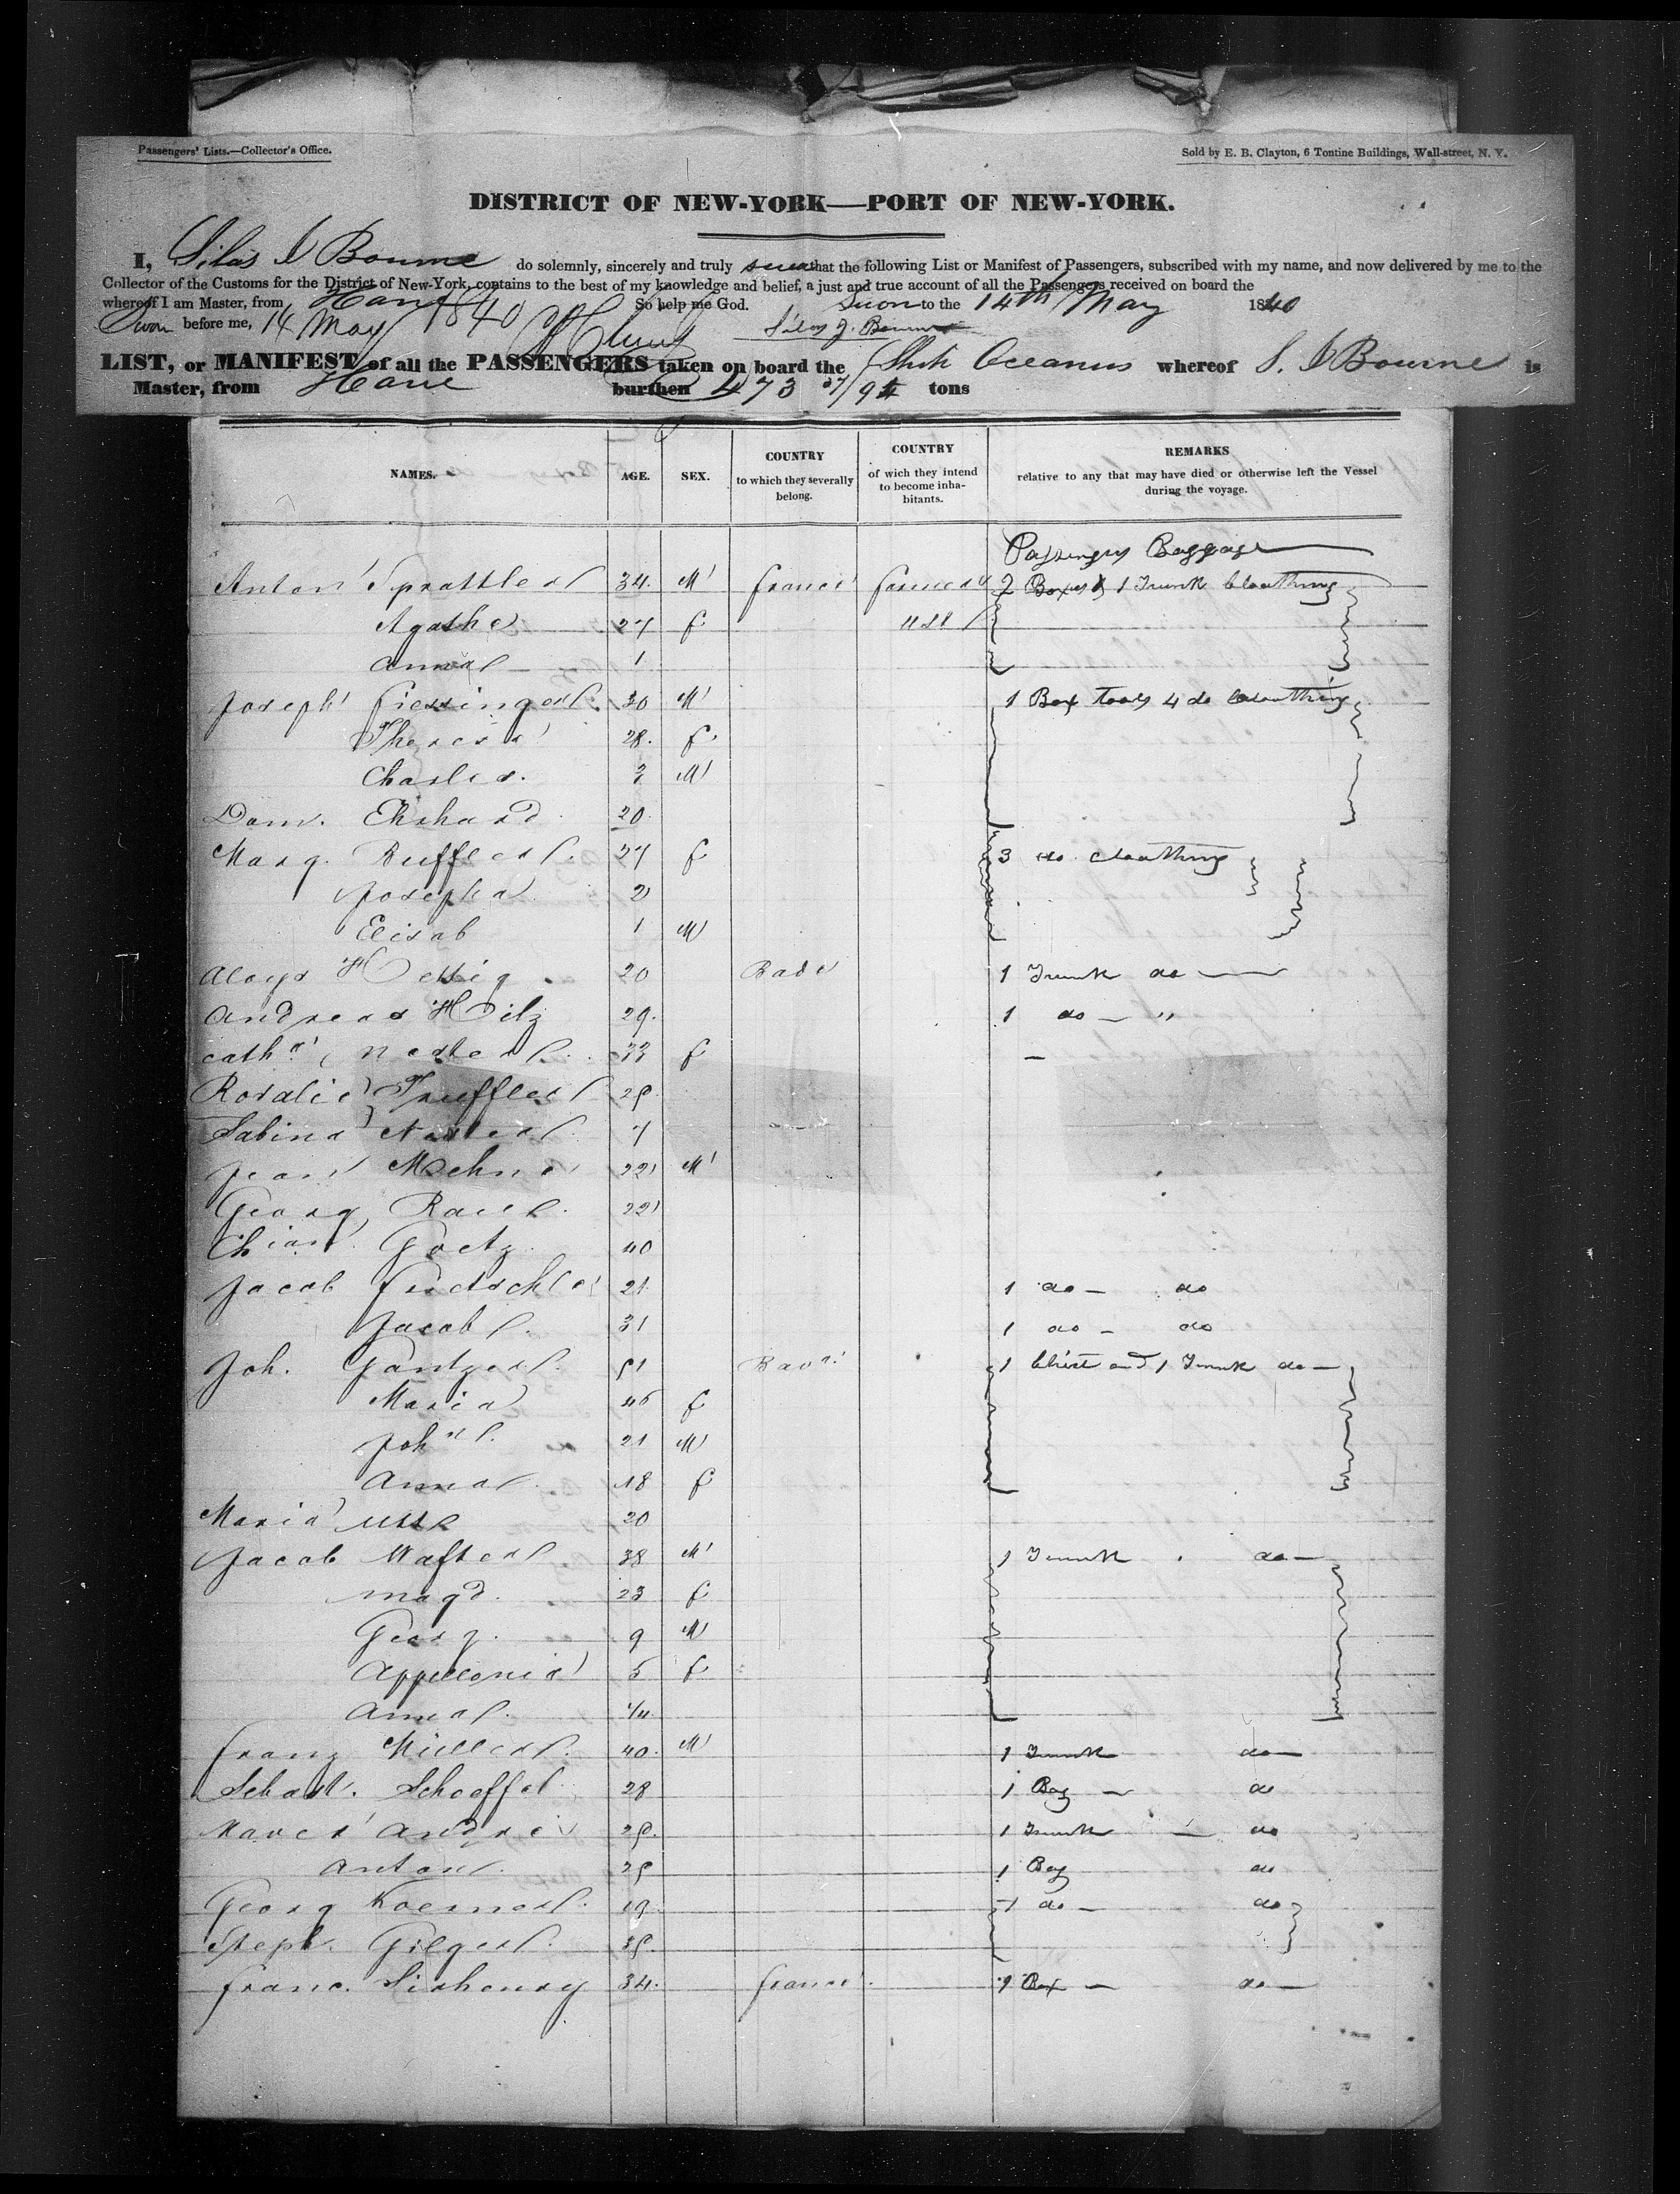 Passengers' Lists.—Collector's Office.
Sold by E. B. Clayton, 6 Tontine Buildings, Wall-street, N. Y.
DISTRICT OF NEW-YORK—PORT OF NEW-YORK.
I, Silas J Bourne do solemnly, sincerely and truly swear that the following List or Manifest of Passengers, subscribed with my name, and now delivered by me to the
Collector of the Customs for the District of New-York, contains to the best of my knowledge and belief, a just and true account of all the Passengers received on board the
whereof I am Master, from Havre So help me God. Sworn to the 14th May 1840
Sworn before me, 14 May 1840 Silas J. Bourne
LIST, or MANIFEST of all the PASSENGERS taken on board the Ship Oceanus whereof S. J Bourne is
Master, from Havre burthen 473 37/94 tons
NAMES. AGE. SEX. COUNTRY to which they severally belong. COUNTRY of wich they intend to become inhabitants. REMARKS relative to any that may have died or otherwise left the Vessel during the voyage.
Passengers Baggage
Anton Sprattler 34. M france 2 Boxes & 1 Trunk Cloathing
Agatha 27 f
Anna 1
Joseph Fiessinger 30 M 1 Box tools 4 do Cloathing
Theresa 28. f
Charles. M
Dom. Ehrhard 20
Marg. Ruffler 27 f 3 do. cloathing
Josepha 2
Elisab 1 M
Aloys Hettig 20 Bade 1 Trunk do
Andreas Hilz 29. 1 do — "
cath. Nesler 33 f —
Rosalie Truffler 25
Sabina Nesler 7
Jean Mehne 22 M
Georg Rau 22
Chian. Goetz 40
Jacob Fuetschle 21 1 do — do
Jacob 31 1 do — do
Joh. Gantzer 51 Bava. 1 Chest and 1 Trunk do —
Maria 46 f
Joh 21 M
Anna 18 f
Maria 20
Jacob Wafter 38 M 1 Trunk do —
Magd. 23 f
Georg. 9 M
Appellonia 5 f
Anna
franz Müller 40. M 1 Trunk do —
Sebast. Schoeffel 28 1 Bag — do
Andre 25. 1 Trunk — do
Anton 25 1 Bag do
Georg Koerner 19 1 do — do
Steph. Gilger 35.
franc. Sirhenry 34. france 1 Box — do —